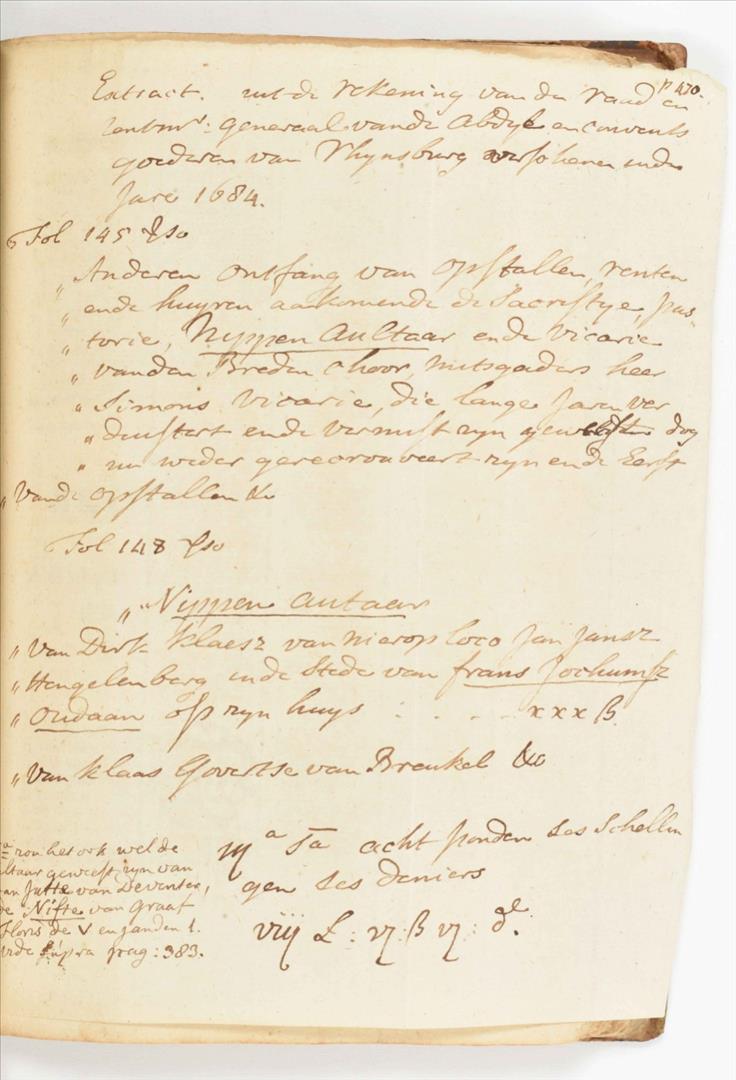 p 470.
Extract. uit de rekening van den raad en
rentmr: generaal vande Abdye en convents
goederen van Rhynsburg verschenen inden
Jare 1684.
Fol 145 vso
„ Anderen ontfang van opstallen, renten
„ ende huyren aankomende de Sacristye, pas-
„ torie, Nyppen Aultaar ende vicarie
„ vanden Breden Choor, mitsgaders heer
„ Simons vicarie, die lange Jaren ver
„ duystert ende vermist zyn geweest dog
„ nu weder gerecouvreert zyn ende Eerst
„ Vande opstallen &c
Fol 148 vso
„ „Nyppen autaar
„ van Dirk Klaesz van Nierop loco Jan Jansz
„ Hengelenberg inde stede van frans Jochumsz
„ Oudaan op zyn huys : . . . . xxx ß
„ Van Klaas Govertse van Breukel &c
iija Sa acht ponden ses Schellin
gen ses deniers
viij £ : vj : ß vj : de.
a zou het ook wel de
altaar geweest zyn van
an Jutte van Deventer,
de Nifte van Graaf
Floris de V en zanden 1.
vide supra pag: 383.